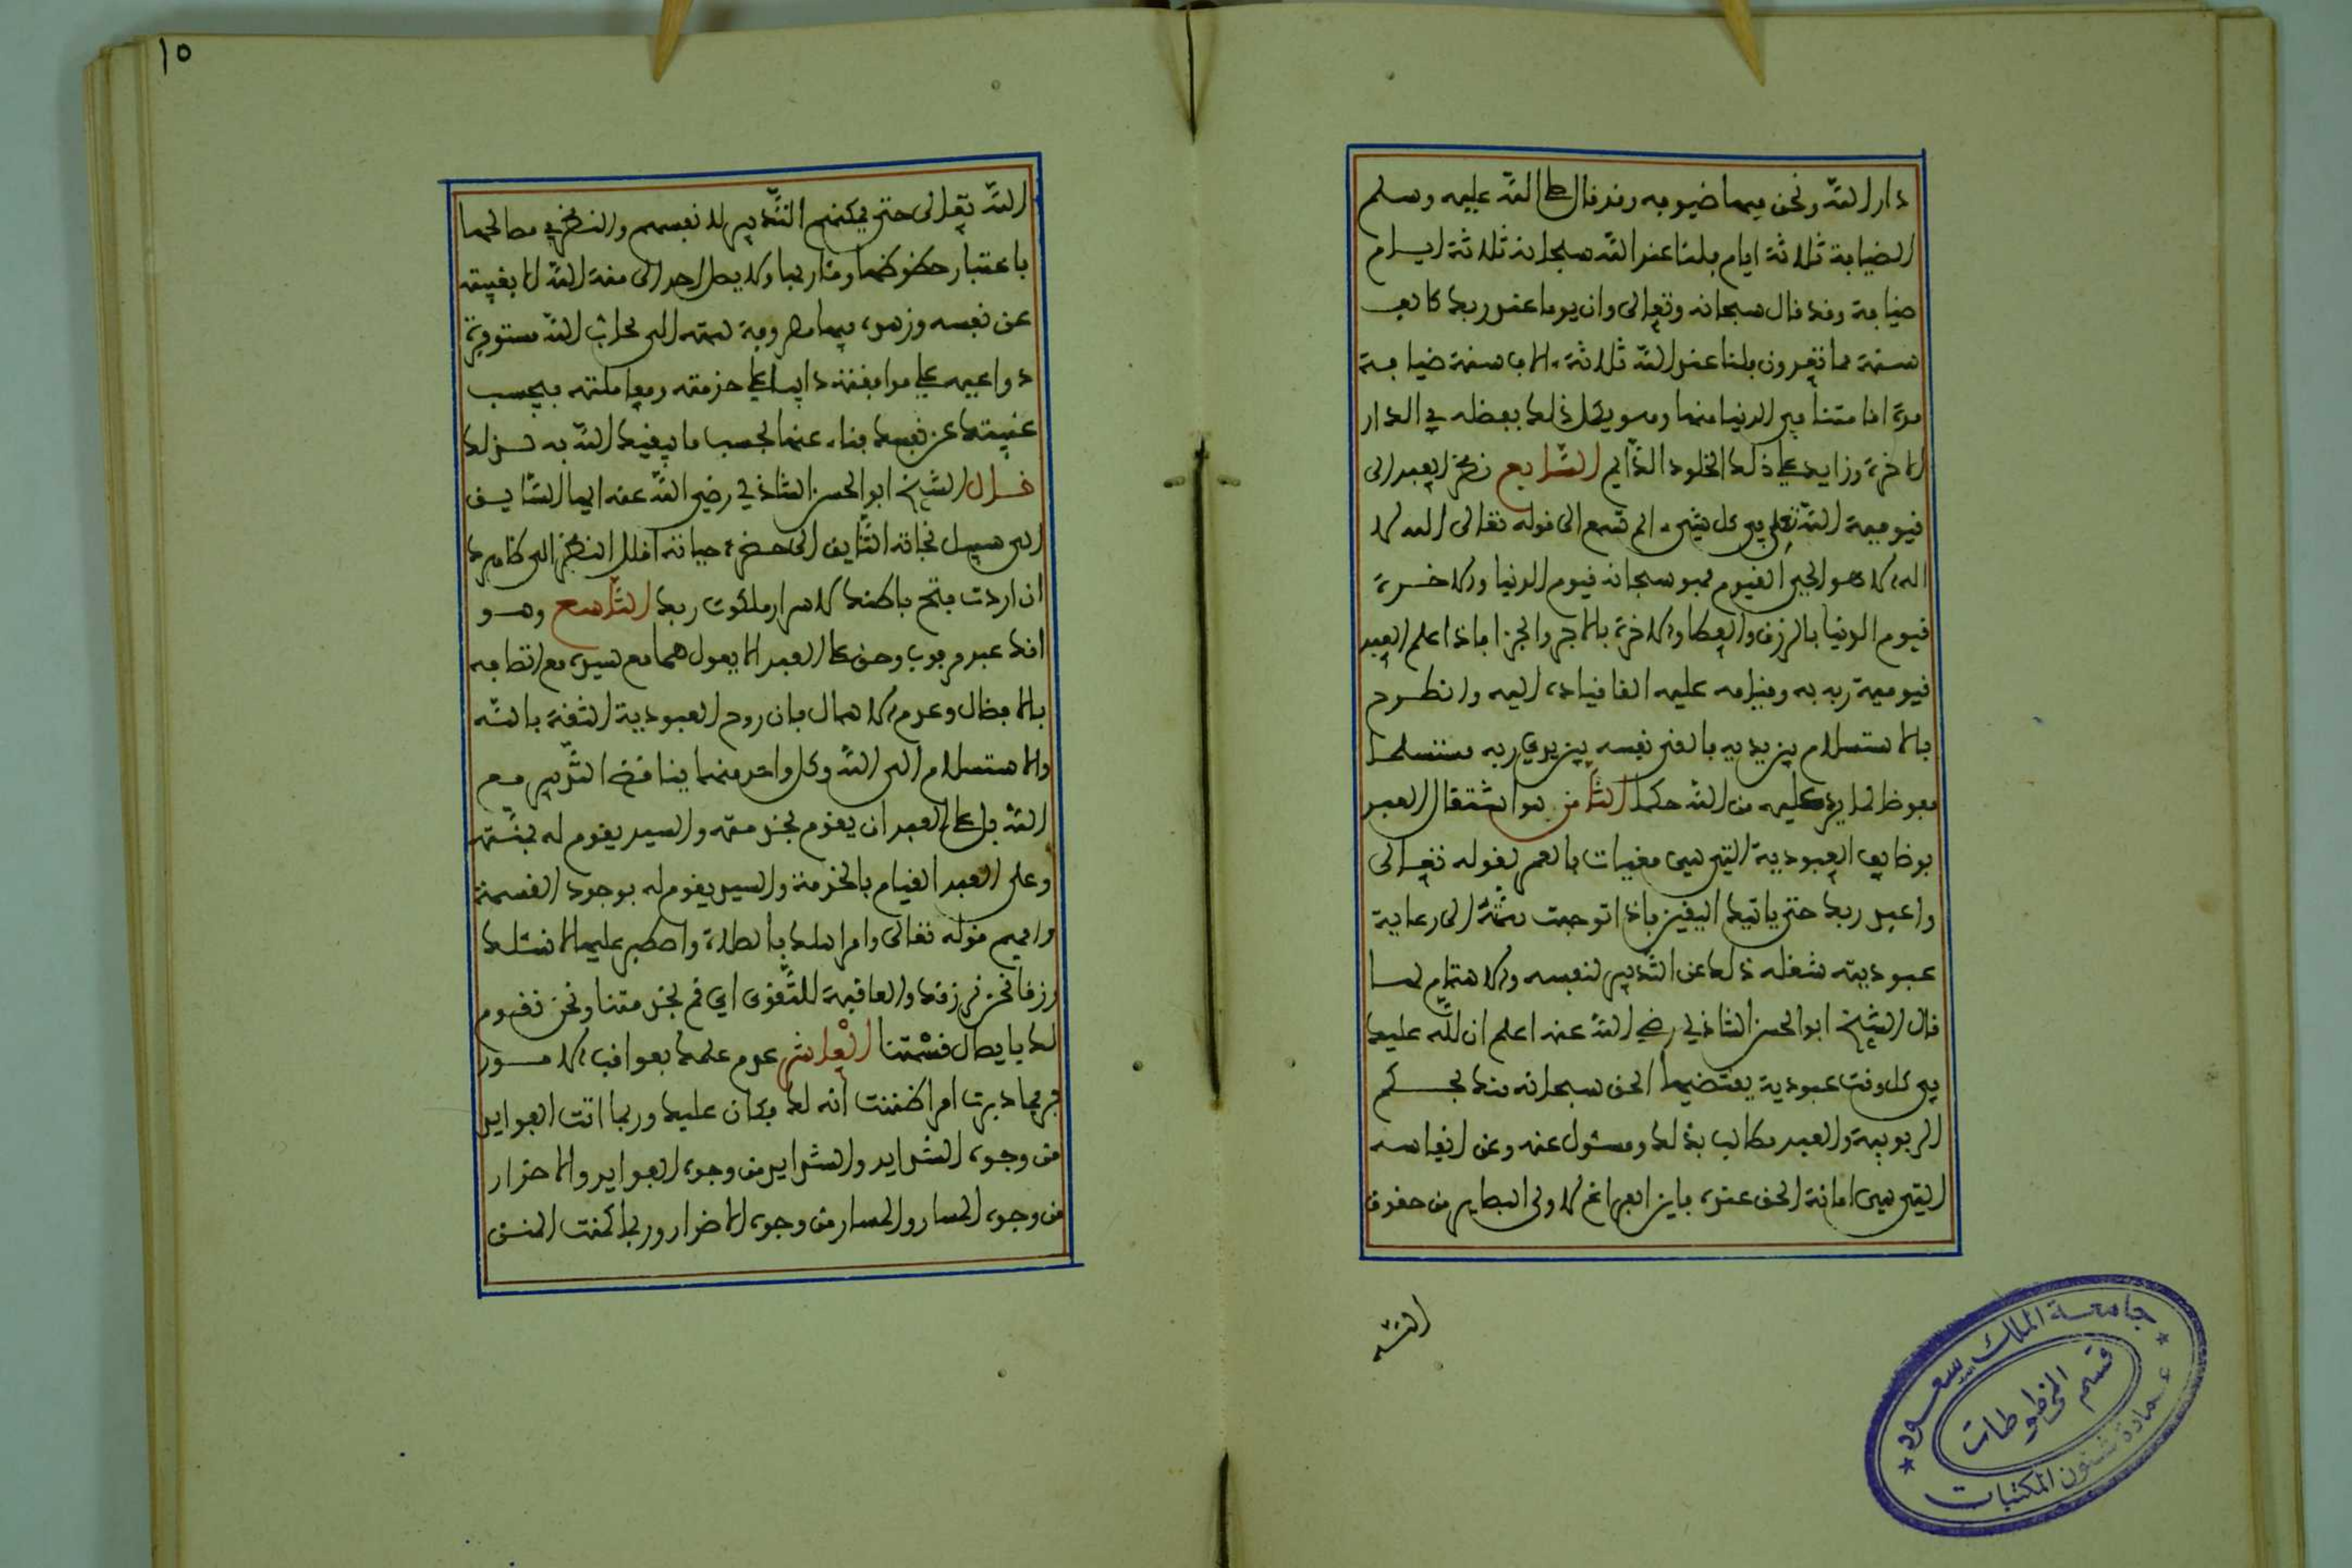 دار الله ونحن فيها ضيوفه وقد قال صلى الله عليه وسلم
الضيافة ثلاثة ايام فلنا عند الله سبحانه ثلاثة ايام
ضيافة وقد قال سبحانه وتعالى وان يوما عند ربك كالف
سنة مما تعدون فلنا عند الله ثلاثة ءالاف سنة ضيافة
مدة اقامتنا في الدنيا منها وهو يكمل ذلك بفضله في الدار
الاخرة وزايد على ذلك الخلود الدايم السابع نظر العبد الى
قيومية الله تعلى في كل شيء الم تسمع الى قوله تعالى الله لا
اله الا هو الحي القيوم فهو سبحانه قيوم الدنيا والاخرة
قيوم الدنيا بالرزق والعطا والاخرة بالاجر والجزا فاذا علم العبد
قيومية ربه به وقيامه عليه القا قياده اليه وانطرح
بالاستسلام بين يديه فالقى نفسه بين يدي ربه مستسلما
مفوضا لما يرد عليه من الله حكما الثامن هو اشتغال العبد
بوظايف العبودية التي هي مغيات بالعمر لقوله تعالى
واعبد ربك حتى ياتيك اليقين فاذا توجهت همته الى رعاية
عبوديته شغله ذلك عن التدبير لنفسه والاهتمام لها
قال الشيخ ابو الحسن الشاذلي رضي الله عنه اعلم ان لله عليك
في كل وقت عبودية يقتضيها الحق سبحانه منك بحكم
الربوبية والعبد مطالب بذلك ومسئول عنه وعن انفاسه
التي هي امانة الحق عنده فاين الفراغ لاولى البصاير من حقوق
الله
١٥
الله تعالى حتى يمكنهم التدبير لانفسهم والنظر في مصالحها
باعتبار حظوظها ومئاربها ولا يصل احد الى منة الله الا بغيبته
عن نفسه وزهده فيها مصروفة همته الى محاب الله مستوفرة
دواعيه على موافقته دايبا على خدمته ومعاملته فبحسب
غيبتك عن نفسك فناء عنها بحسب ما يبقيك الله به لذلك
قال الشيخ ابو الحسن الشاذلي رضي الله عنه ايها السابق
الى سبيل نجاته التايق الى حضرة حياته اقلل النظر الى ظاهرك
ان اردت فتح باطنك لاسرار ملكوت ربك التاسع وهو
انك عبد مربوب وحق على العبد الا يعول هما مع سيده مع اتصافه
بالافضال وعدم الاهمال فان روح العبودية الثقة بالله
والاستسلام الى الله وكل واحد منهما يناقض التدبير مع
الله بل على العبد ان يقوم بخدمته والسيد يقوم له بمنته
وعلى العبد القيام بالخدمة والسيد يقوم له بوجود القسمة
وافهم قوله تعالى وامر اهلك بالصلاة واصطبر عليها لا نسئلك
رزقا نحن نرزقك والعاقبة للتقوى اي قم بخدمتنا ونحن نقوم
لك بايصال قسمتنا العاشر عدم علمك بعواقب الامور
فربما دبرت امرا ظننت انه لك فكان عليك وربما اتت الفوايد
من وجوه الشدايد والشدايد من وجوه الفوايد والاضرار
من وجوه المسار والمسار من وجوه الاضرار وربما كمنت المنن
جامعة الملك سعود
قسم المخطوطات
عمادة شئون المكتبات